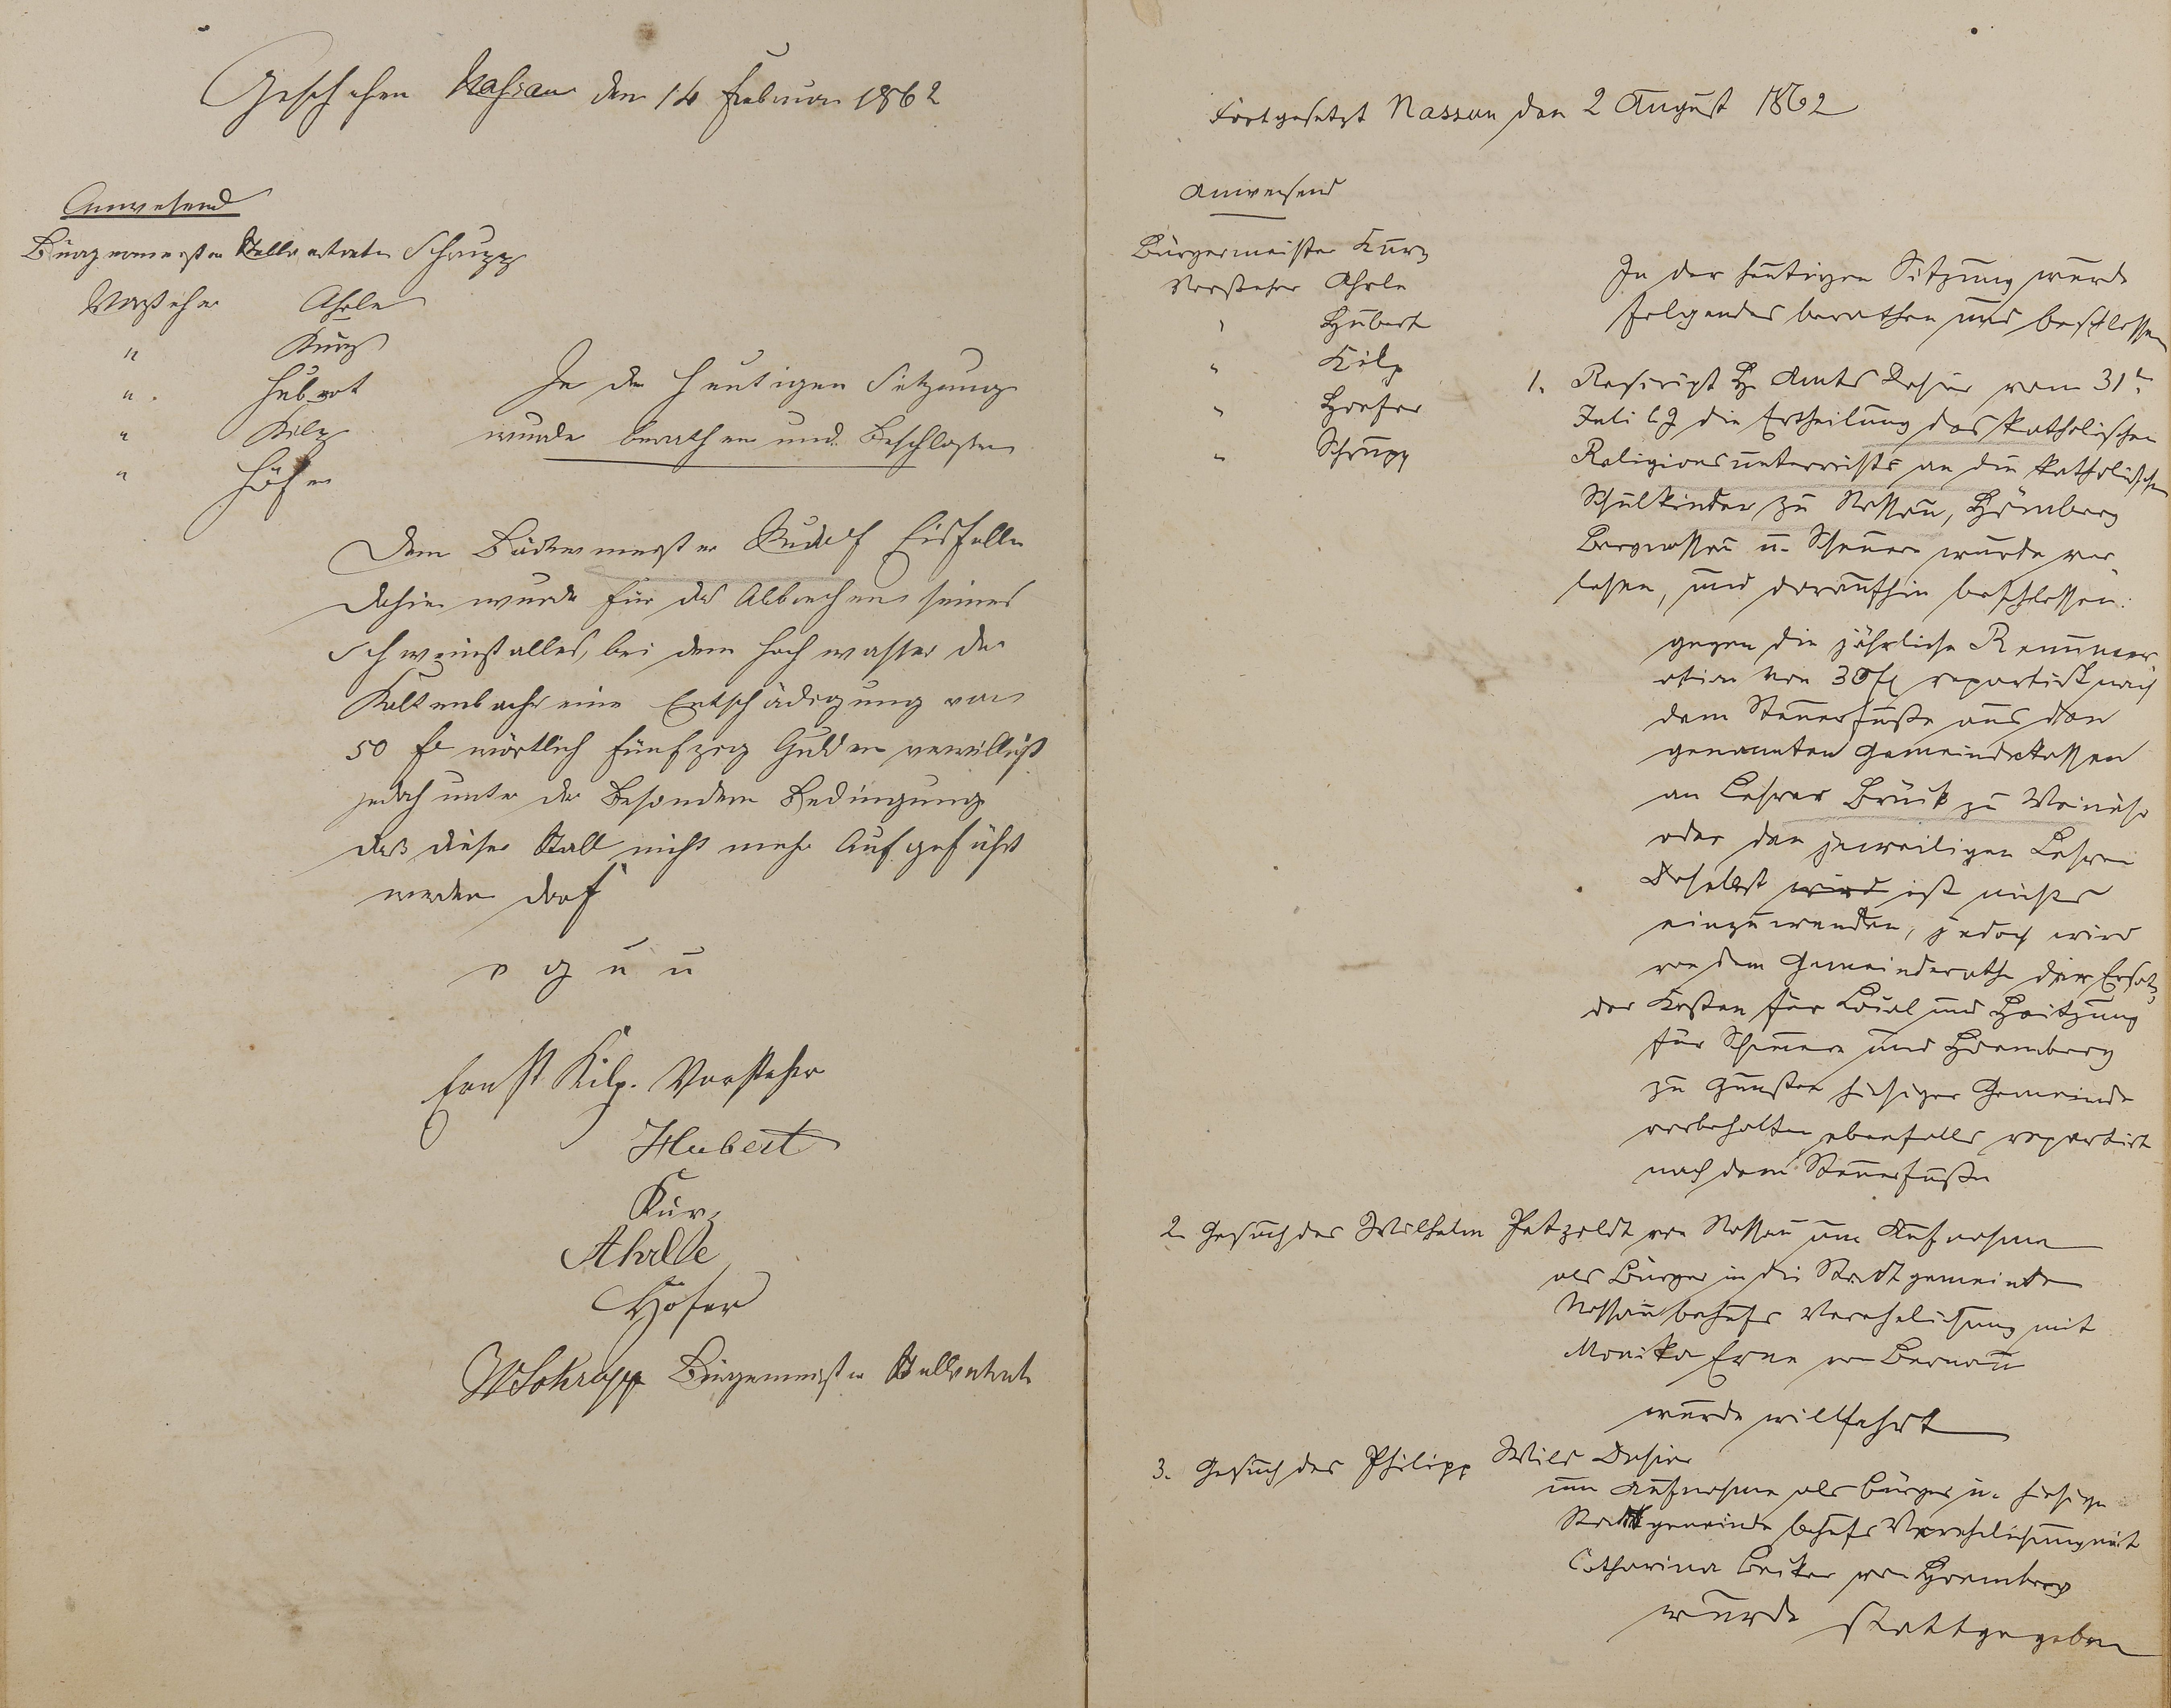 Geschehen Nassau den 14 Februar 1862
Anwesend
Bürgermeister Stellvertreter Schrupp
Vorsteher Ahrle
" Kurz
" Hubert
" Kilp
" Höfer
In der heutigen Sitzung
wurde berathen und Beschlossen
Dem Bäckermeister Rudolf Eisfeller
Dahier wurde für das Abbrechen seines
Schweinstalles, bei dem Hochwasser der
Kaltenbachs eine Entschädigung von
50 fl wörtlich fünfzig Gulden verwilligt
jedoch unter der Besondern Bedingung
das dieser Stall nicht mehr Aufgeführt
werden darf
v g u u
Ernst Kilp. Vorsteher
Hubert
Kurz
Ahrle
Höfer
W Schrupp Bürgermeister Stellvertreter
Fortgesetzt Nassau den 2 August 1862
Anwesend
Bürgermeister Kurz
Vorsteher Ahrle
" Hubert
" Kilp
" Hoefer
" Schrupp
In der heutigen Sitzung wurde
folgendes berathen und beschlossen
1. Rescript H. Amts Dahier vom 31t
Juli l J die Ertheilung des katholischen
Religionsunterrichts an die katholischen
Schulkinder zu Nassau, Hömberg
Bergnassau u. Scheuern wurde ver
lesen, und daraufhin beschlossen:
gegen die jährliche Remuner
ation von 30 fl repartirt nach
dem Steuerfuße aus den
genannten Gemeindekassen
an Lehrer Brück zu Weinähr
oder den jeweiligen Lehrer
Daselbst wird ist nichts
einzuwenden, jedoch wird
von dem Gemeinderathe der Ersatz
der Kosten für Local und Heitzung
für Scheuern und Hoemberg
zu Gunsten hiesiger Gemeinde
vorbehalten ebenfalls repartirt
nach dem Steuerfuße
2. Gesuch des Wilhelm Petzoldt von Nassau um Aufnahme
als Bürger in die Stadtgemeinde
Nassau behufs Verehelichung mit
Monika Erne von Bernau
wurde willfahrt
3. Gesuch des Philipp Wild Dahier
um Aufnahme als Bürger in hiesige
Stadtgemeinde behufs Verehelichung mit
Catharina Becker von Hoemberg
wurde stattgegeben